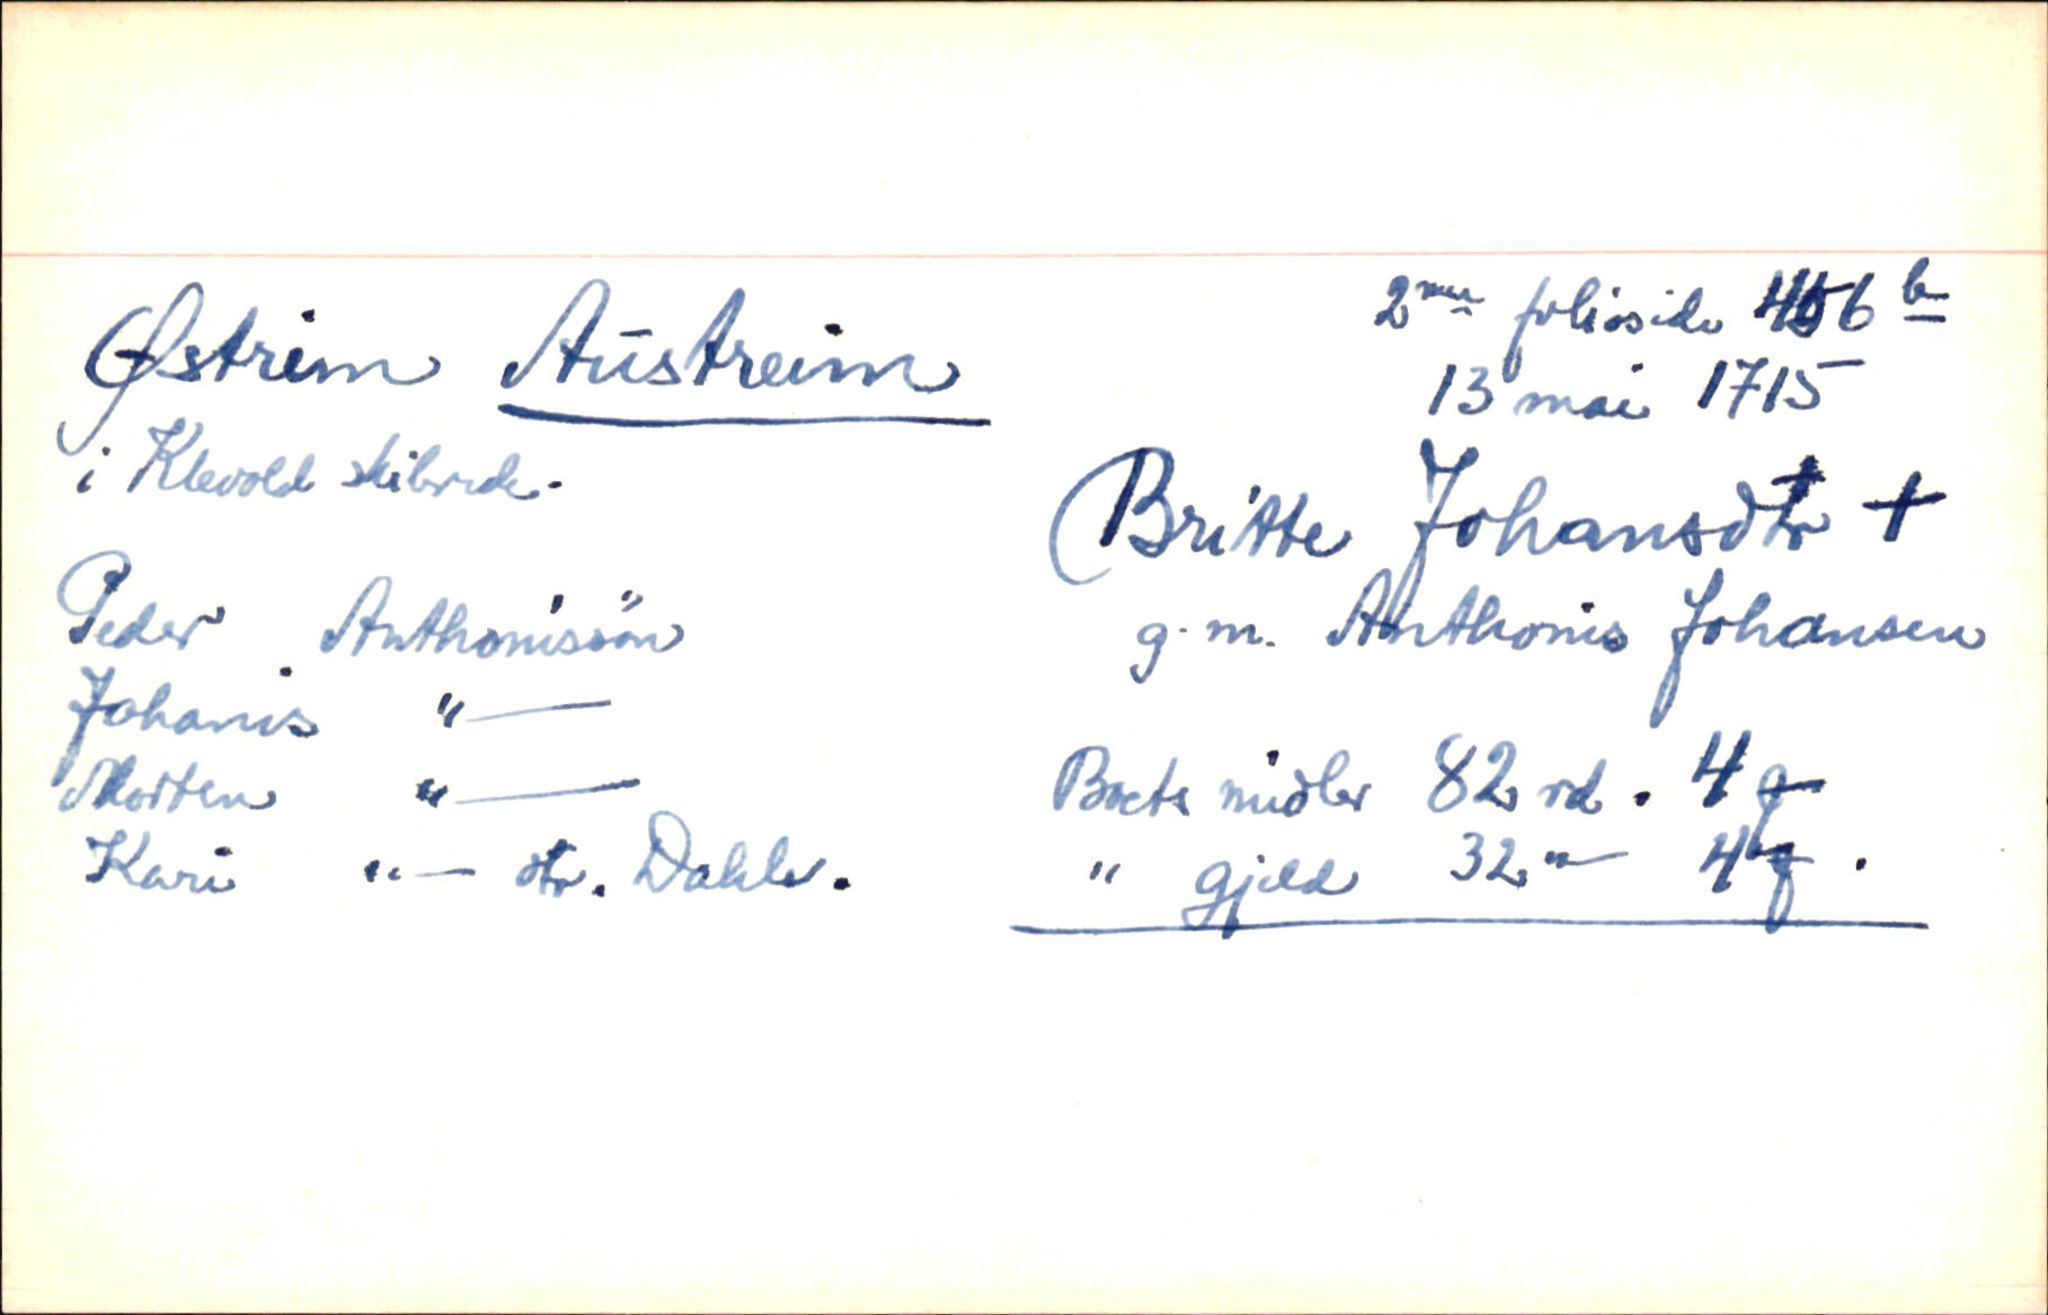 Østrim Austreim
i Klevold skibrede.
Peder Anthonissön
Johanis "—
Morten "—
Kari "— dtr. Dahle.
folioside 456 b
13 mai 1715
Britte Johansdtr +
g. m. Anthonis Johansen
Boets midler 82 rd. 4 q
" gjeld 32 "— 4 q.